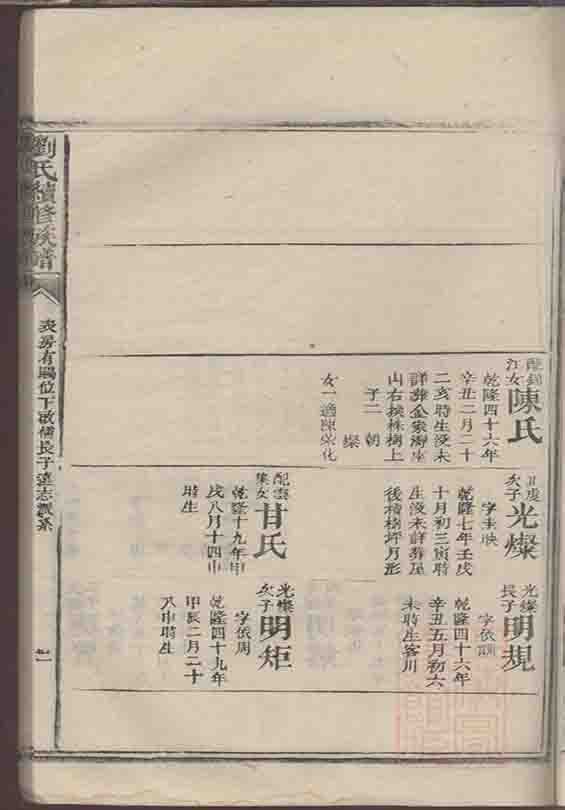 陳氏
江女
乾隆四十六年
辛丑二月二十
二亥時生没未
詳葬金家灣座
山右挨株樹上
子二 朝
燦
女一適陳榮化
光燦
次子
乾隆七年壬戌
十月初三寅時
生没未詳葬屋
後積樹坪月形
配雲
集女
甘氏
乾隆十九年甲
戌八月十四申
時生
光燦
長子
明規
字依
乾隆四十六年
辛丑五月初六
未時生客川
光燦
次子
明矩
字依周
乾隆四十九年
甲辰二月二十
八申時生
劉氏續修族譜
房有 位下啟 長子 志 系